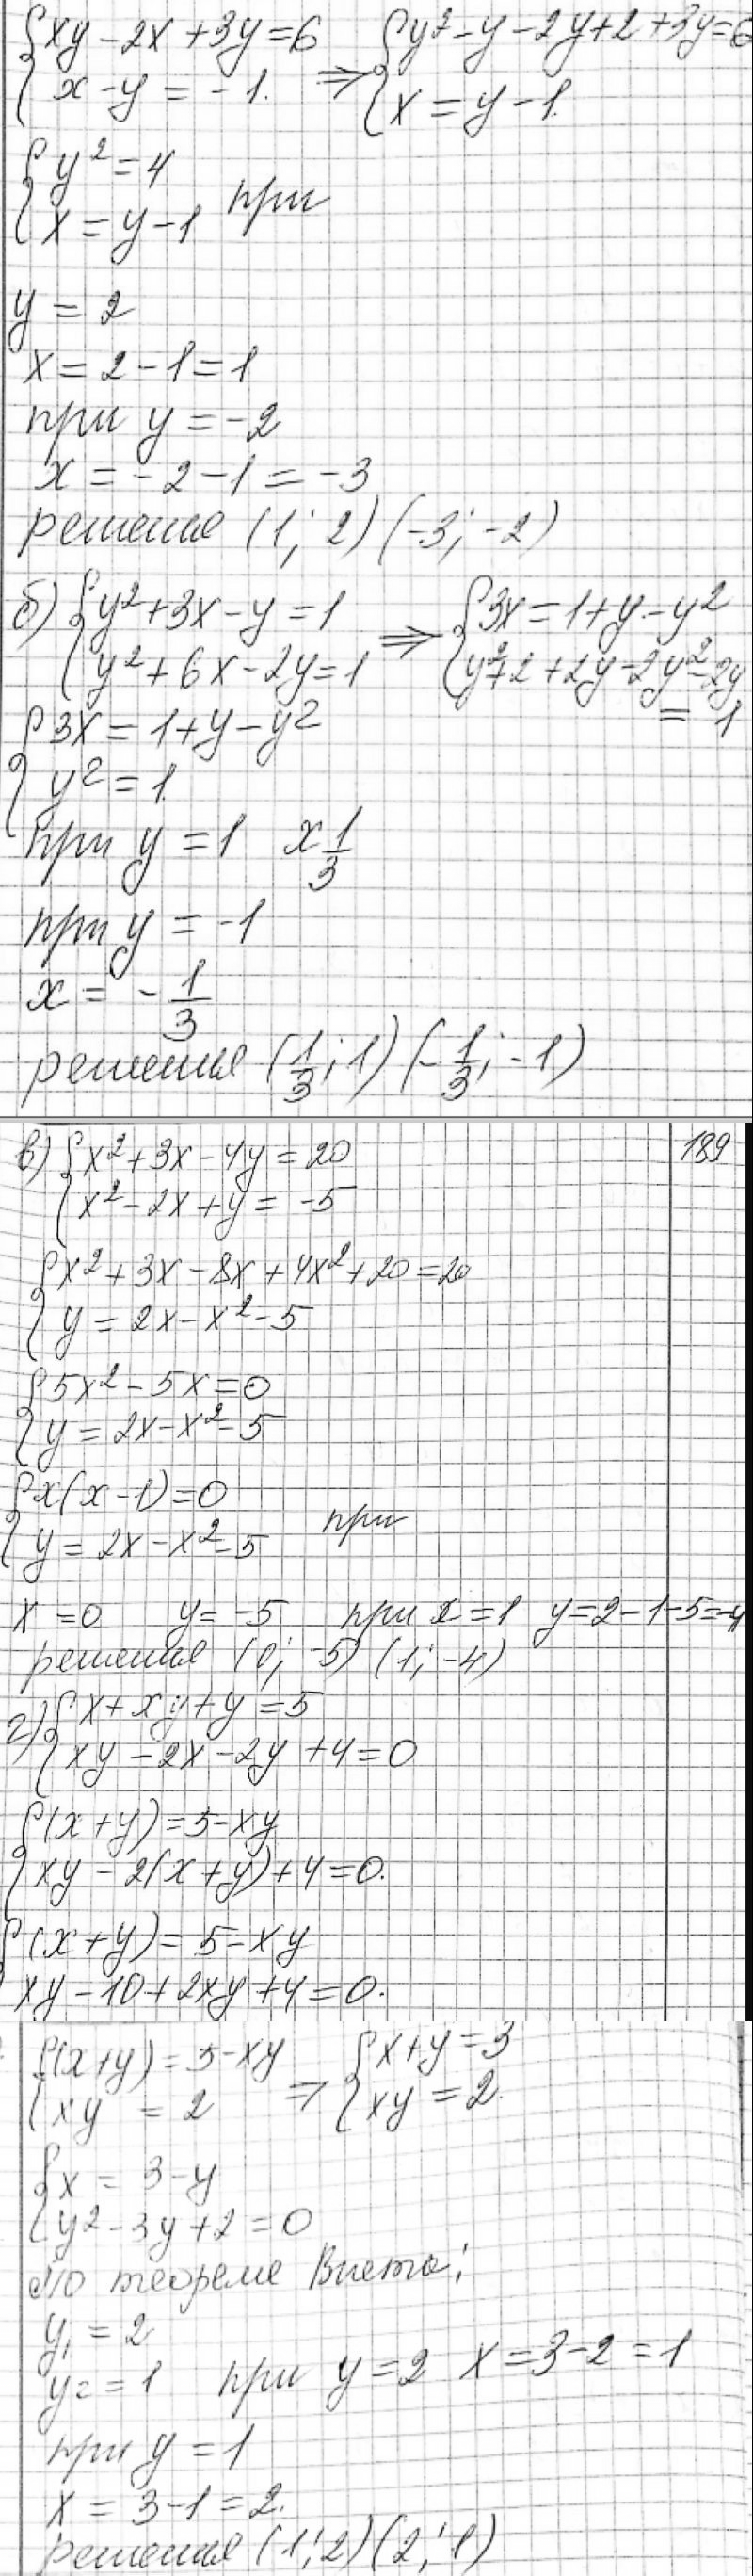 {xy - 2x + 3y = 6 ⇒ {y² - y - 2y + 2 + 3y = 6
{x - y = -1. {x = y - 1.
{y² = 4
{x = y - 1 при
y = 2
x = 2 - 1 = 1
при y = -2
x = -2 - 1 = -3
решения (1; 2) (-3; -2)
б) {y² + 3x - y = 1 ⇒ {3x = 1 + y - y²
{y² + 6x - 2y = 1 {y² + 2 + 2y - 2y² - 2y
= 1
{3x = 1 + y - y²
{y² = 1.
при y = 1 x 1/3
при y = -1
x = - 1/3
решения (1/3; 1) (-1/3; -1)
в) {x² + 3x - 4y = 20 189
{x² - 2x + y = -5
{x² + 3x - 8x + 4x² + 20 = 20
{y = 2x - x² - 5
{5x² - 5x = 0
{y = 2x - x² - 5
{x(x - 1) = 0
{y = 2x - x² - 5 при
x = 0 y = -5 при x = 1 y = 2 - 1 - 5 = -4
решения (0; -5) (1; -4)
г) {x + xy + y = 5
{xy - 2x - 2y + 4 = 0
{(x + y) = 5 - xy
{xy - 2(x + y) + 4 = 0.
{(x + y) = 5 - xy
xy - 10 + 2xy + 4 = 0.
{(x + y) = 5 - xy ⇒ {x + y = 3
{xy = 2 {xy = 2.
{x = 3 - y
{y² - 3y + 2 = 0
по теореме Виета:
y₁ = 2
y₂ = 1 при y = 2 x = 3 - 2 = 1
при y = 1
x = 3 - 1 = 2.
решения (1; 2) (2; 1)